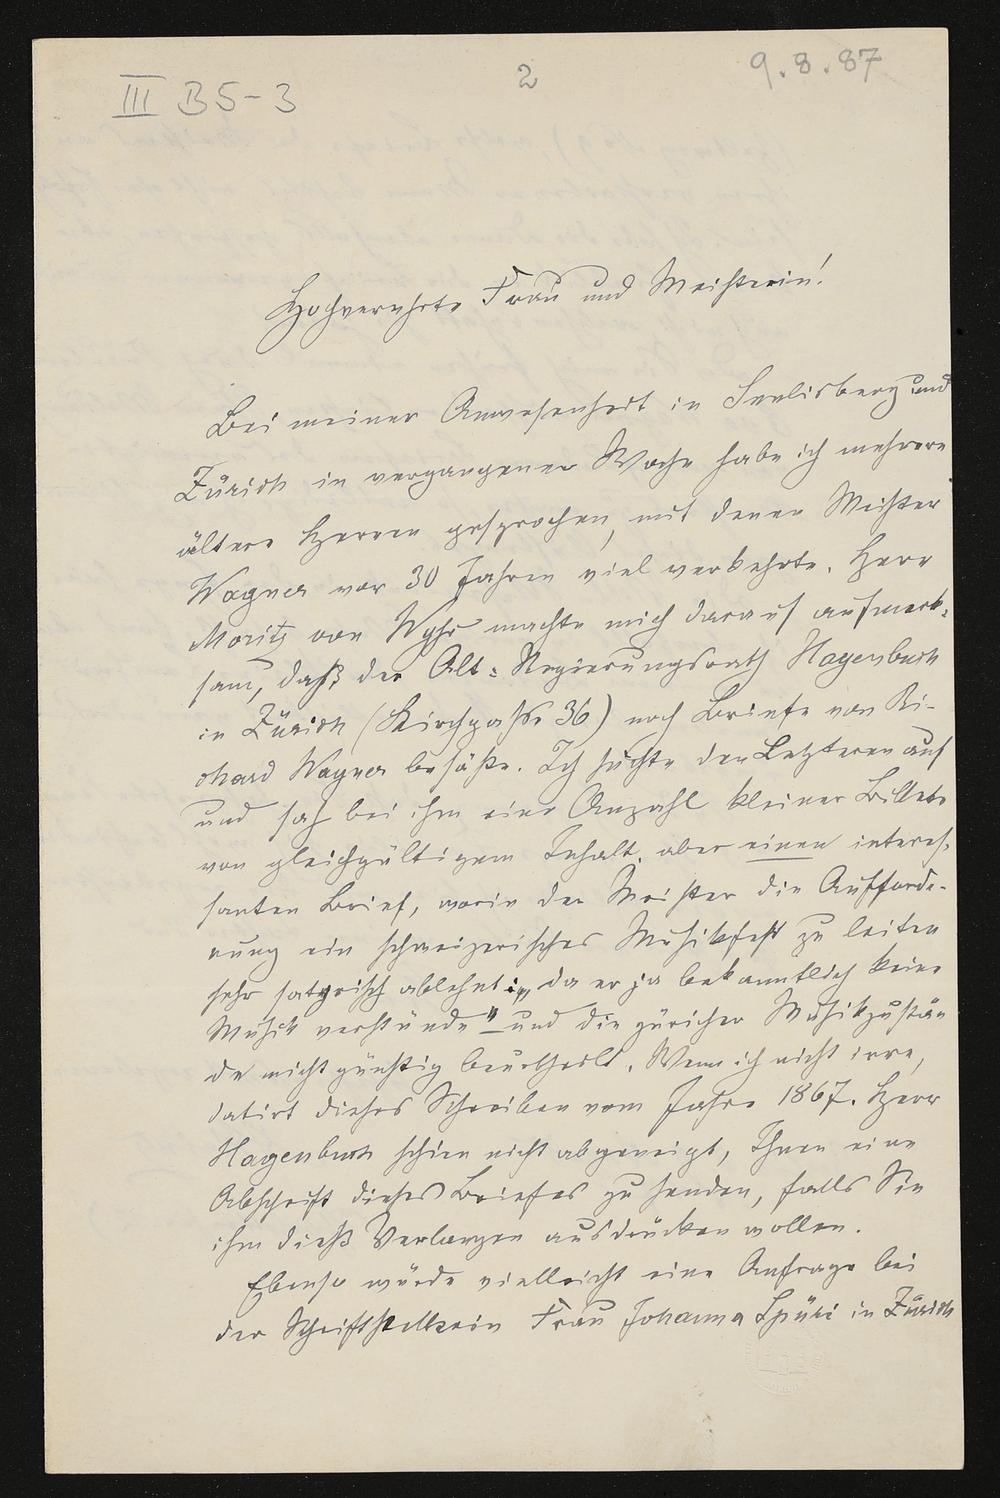 III B5-3
2
9.8.87
Hochverehrte Frau und Meisterin!
Bei meiner Anwesenheit in Seelisberg und
Zürich in vergangener Woche habe ich mehrere
ältere Herren gesprochen, mit denen Meister
Wagner vor 30 Jahren viel verkehrte. Herr
Moritz von Wyss machte mich darauf aufmerk-
sam, daß der Alt-Regierungsrath Hagenbuch
in Zürich (Kirchgasse 36) noch Briefe von Ri-
chard Wagner besäße. Ich suchte den Letzteren auf
und sah bei ihm eine Anzahl kleiner Billets
von gleichgültigem Inhalt, aber einen interes-
santen Brief, worin der Meister die Aufforde-
rung ein schweizerisches Musikfest zu leiten
sehr satyrisch ablehnt: „da er ja bekanntlich keine
Musik verstünde" und die züricher Musikzustän-
de nicht günstig beurtheilt. Wenn ich nicht irre,
datirt dieses Schreiben vom Jahre 1867. Herr
Hagenbuch schien nicht abgeneigt, Ihnen eine
Abschrift dieses Briefes zu senden, falls Sie
ihm dieß Verlangen ausdrücken wollen.
Ebenso würde vielleicht eine Anfrage bei
der Schriftstellerin Frau Johanna Spüri in Zürich